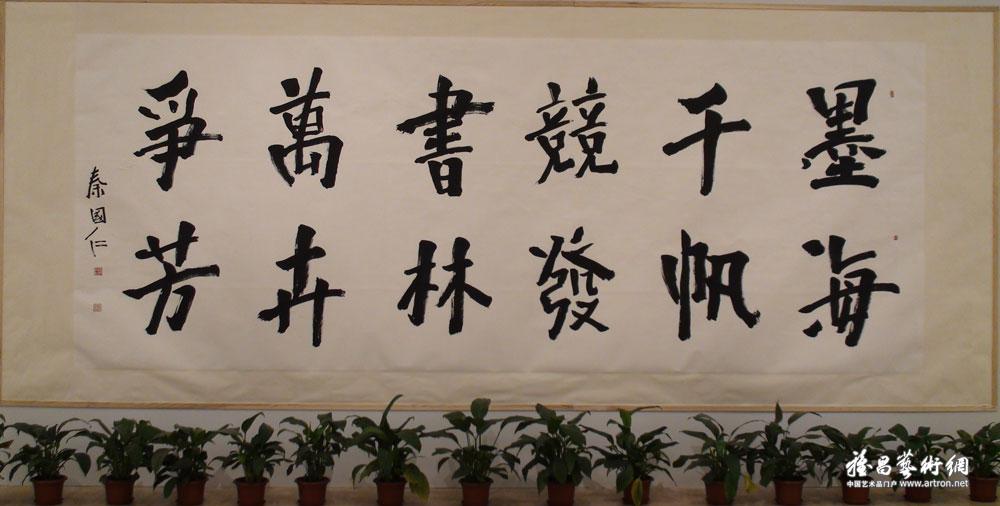 墨海
千帆
競發
書林
萬卉
爭芳
秦國仁
雅昌藝術網
中国艺术品门户 www.artron.net